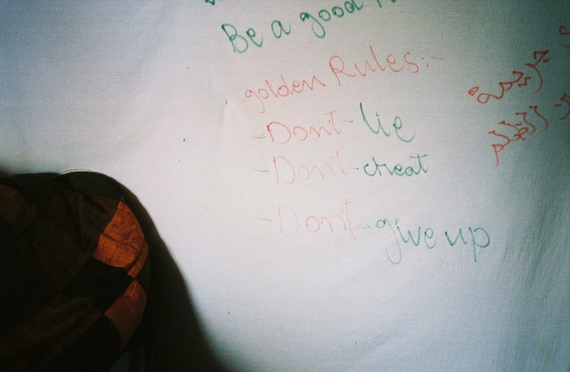 Be a good
golden Rules:-
- Don't - lie
- Don't - cheat
- Don't - give up